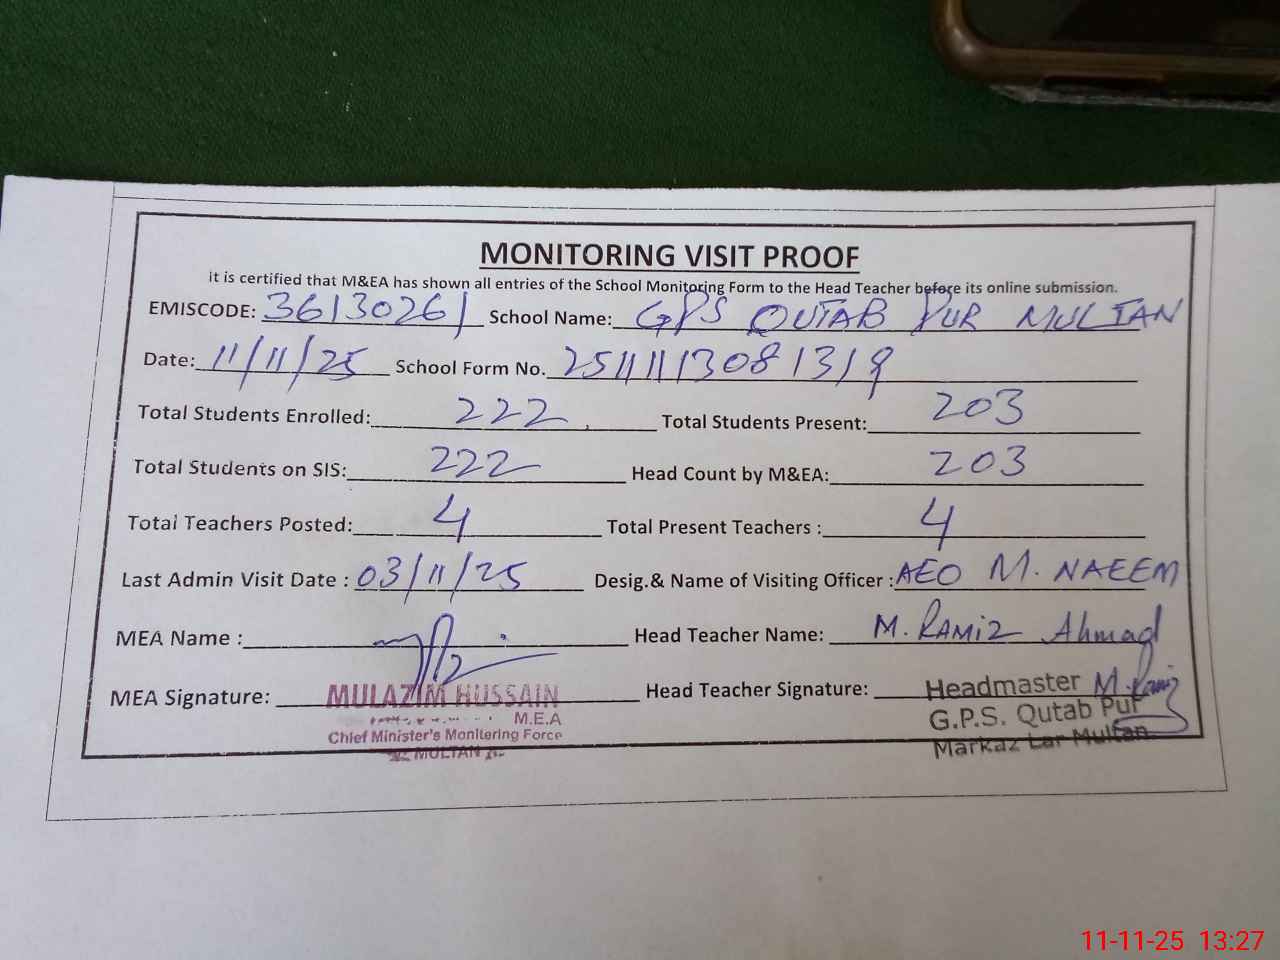 MONITORING VISIT PROOF
it is certified that M&EA has shown all entries of the School Monitoring Form to the Head Teacher before its online submission.
EMISCODE: 36130261 School Name: GPS QUTAB PUR MULTAN
Date: 11/11/25 School Form No. 2511111308131 9
Total Students Enrolled: 222 Total Students Present: 203
Total Students on SIS: 222 Head Count by M&EA: 203
Total Teachers Posted: 4 Total Present Teachers : 4
Last Admin Visit Date : 03/11/25 Desig.& Name of Visiting Officer : AEO M. NAEEM
MEA Name : Head Teacher Name: M. RAMIZ Ahmad
MEA Signature: MULAZIM HUSSAIN Head Teacher Signature: Headmaster M. Ramiz
M.E.A G.P.S. Qutab Pur
Chief Minister's Monitoring Force Markaz Lar Multan
MULTAN
11-11-25 13:27